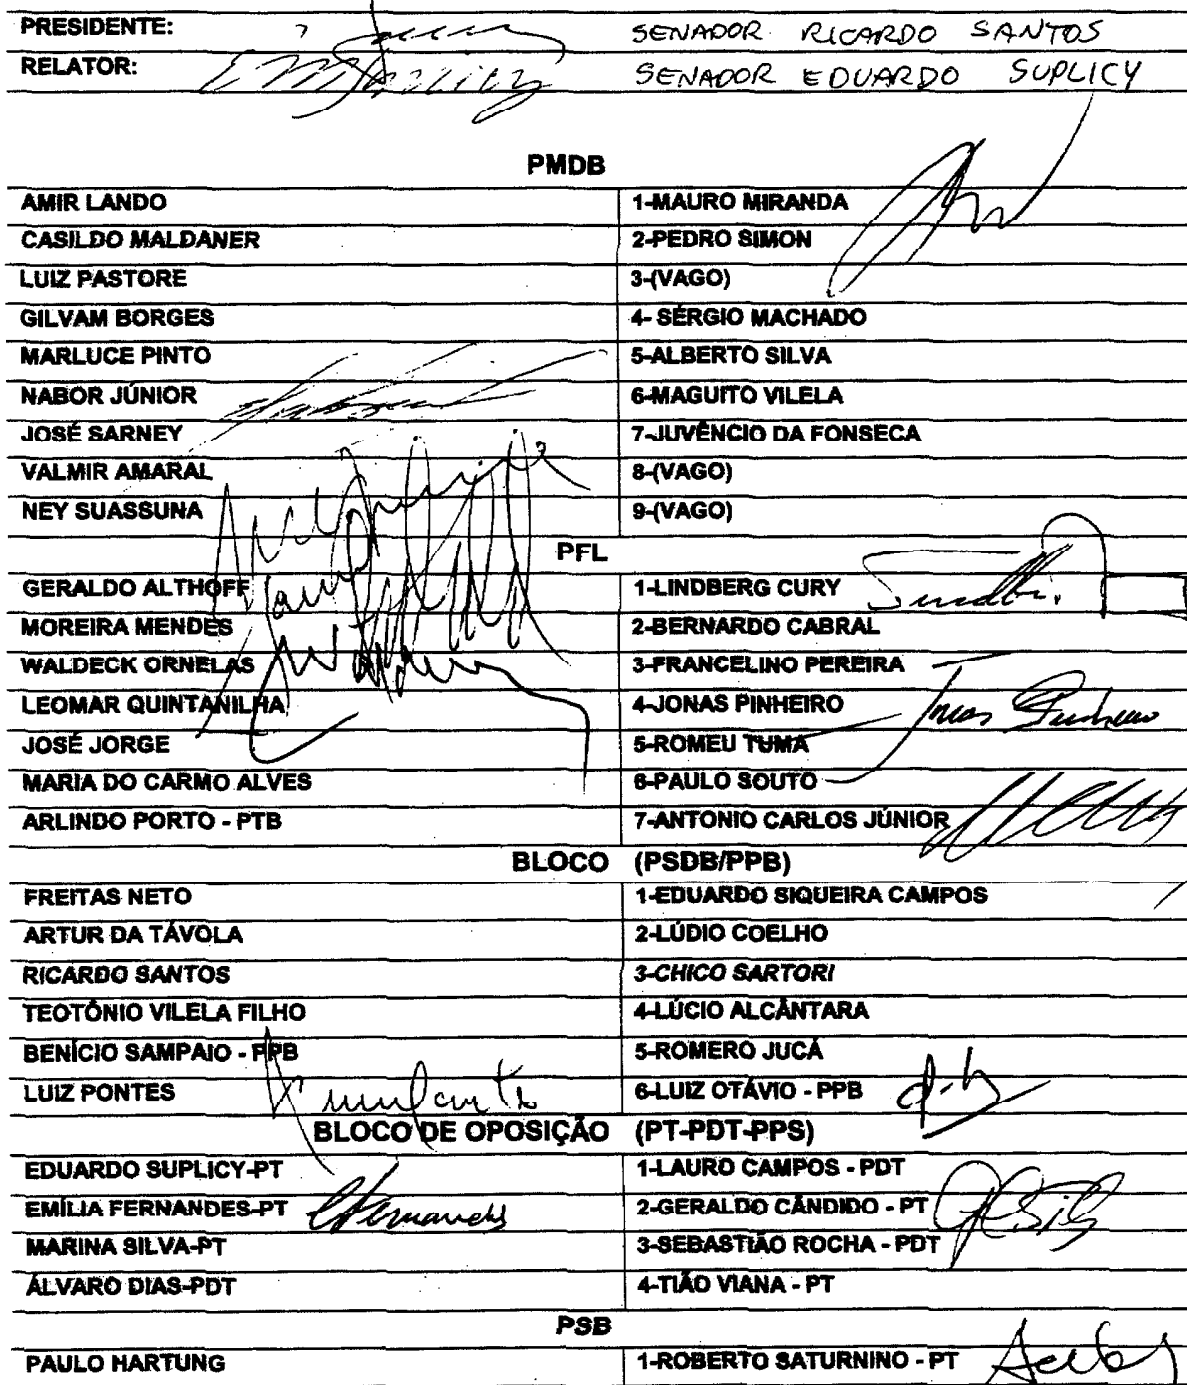 PRESIDENTE: SENADOR RICARDO SANTOS
RELATOR: SENADOR EDUARDO SUPLICY
PMDB
AMIR LANDO 1-MAURO MIRANDA
CASILDO MALDANER 2-PEDRO SIMON
LUIZ PASTORE 3-(VAGO)
GILVAM BORGES 4- SÉRGIO MACHADO
MARLUCE PINTO 5-ALBERTO SILVA
NABOR JÚNIOR 6-MAGUITO VILELA
JOSÉ SARNEY 7-JUVÊNCIO DA FONSECA
VALMIR AMARAL 8-(VAGO)
NEY SUASSUNA 9-(VAGO)
PFL
GERALDO ALTHOFF 1-LINDBERG CURY
MOREIRA MENDES 2-BERNARDO CABRAL
WALDECK ORNELAS 3-FRANCELINO PEREIRA
LEOMAR QUINTANILHA 4-JONAS PINHEIRO Jonas Pinheiro
JOSÉ JORGE 5-ROMEU TUMA
MARIA DO CARMO ALVES 6-PAULO SOUTO
ARLINDO PORTO - PTB 7-ANTONIO CARLOS JÚNIOR
BLOCO (PSDB/PPB)
FREITAS NETO 1-EDUARDO SIQUEIRA CAMPOS
ARTUR DA TÁVOLA 2-LÚDIO COELHO
RICARDO SANTOS 3-CHICO SARTORI
TEOTÔNIO VILELA FILHO 4-LÚCIO ALCÂNTARA
BENÍCIO SAMPAIO - PPB 5-ROMERO JUCÁ
LUIZ PONTES 6-LUIZ OTÁVIO - PPB
BLOCO DE OPOSIÇÃO (PT-PDT-PPS)
EDUARDO SUPLICY-PT 1-LAURO CAMPOS - PDT
EMÍLIA FERNANDES-PT EFernandes 2-GERALDO CÂNDIDO - PT
MARINA SILVA-PT 3-SEBASTIÃO ROCHA - PDT
ÁLVARO DIAS-PDT 4-TIÃO VIANA - PT
PSB
PAULO HARTUNG 1-ROBERTO SATURNINO - PT